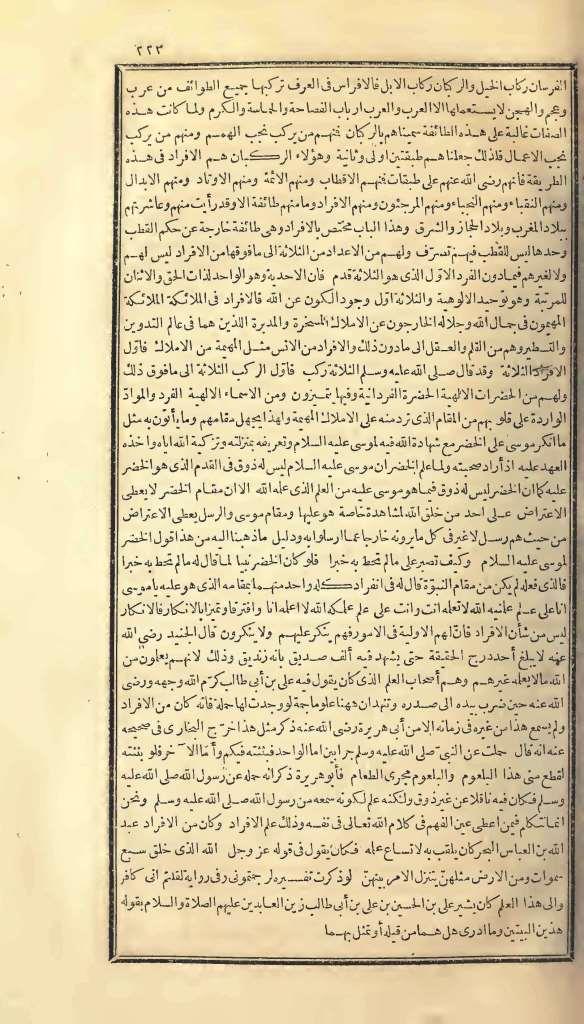 ٢٢٣
الفرسان ركاب الخيل والركبان ركاب الابل فالافراس فى العرف تركبها جميع الطوائف من عرب
وعجم والهجن لا يستعملها الا العرب والعرب ارباب الفصاحة والحماسة والكرم ولما كانت هذه
الصفات غالبة على هذه الطائفة سميناهم بالركبان فمنهم من يركب نجب الهمم ومنهم من يركب
نجب الاعمال فلذلك جعلناهم طبقتين اولى وثانية وهؤلاء الركبان هم الافراد فى هذه
الطريقة فانهم رضى الله عنهم على طبقات فمنهم الاقطاب ومنهم الائمة ومنهم الاوتاد ومنهم الابدال
ومنهم النقباء ومنهم النجباء ومنهم الرجبيون ومنهم الافراد وما منهم طائفة الا وقد رأيت منهم وعاشرتهم
ببلاد المغرب وبلاد الحجاز والشرق وهذا الباب مختص بالافراد وهى طائفة خارجة عن حكم القطب
وحدها ليس للقطب فيهم تصرف ولهم من الاعداد من الثلاثة الى ما فوقها من الافراد ليس لهم
ولا لغيرهم فيما دون الفرد الاول الذى هو الثلاثة قدم فان الاحدية وهو الواحد لذات الحق والاثنان
للمرتبة وهو توحيد الالوهية والثلاثة اول وجود الكون عن الله فالافراد فى الملائكة الملائكة
المهيمون فى جمال الله وجلاله الخارجون عن الاملاك المسخرة والمدبرة اللذين هما فى عالم التدوين
والتسطير وهم من القلم والعقل الى ما دون ذلك والافراد من الانس مثل المهيمة من الاملاك فاول
الافراد الثلاثة وقد قال صلى الله عليه وسلم الثلاثة ركب فاول الركب الثلاثة الى ما فوق ذلك
ولهم من الحضرات الالهية الحضرة الفردانية وفيها يتميزون ومن الاسماء الالهية الفرد والمواد
الواردة على قلوبهم من المقام الذى ترد منه على الاملاك المهيمة ولهذا يجهل مقامهم وما يأتون به مثل
ما انكر موسى على الخضر مع شهادة الله فيه لموسى عليه السلام وتعريفه بمنزلته وتزكية الله اياه واخذه
العهد عليه اذ أراد صحبته ولما علم الخضر ان موسى عليه السلام ليس له ذوق فى القدم الذى هو الخضر
عليه كما ان الخضر ليس له ذوق فيما هو موسى عليه من العلم الذى علمه الله الا ان مقام الخضر لا يعطى
الاعتراض على احد من خلق الله لمشاهدة خاصة هو عليها ومقام موسى والرسل يعطى الاعتراض
من حيث هم رسل لا غير فى كل ما يرونه خارجا عما ارسلوا به ودليل ما ذهبنا اليه من هذا قول الخضر
لموسى عليه السلام وكيف تصبر على ما لم تحط به خبرا فلو كان الخضر نبيا لما قال له ما لم تحط به خبرا
فالذى فعله لم يكن من مقام النبوة قال له فى انفراد كل واحد منهما بمقامه الذى هو عليه يا موسى
انا على علم علمنيه الله لا تعلمه انت وانت على علم علمكه الله لا اعلمه انا وافترقا وتميزا بالانكار فالانكار
ليس من شأن الافراد فان لهم الاولية فى الامور فهم ينكر عليهم ولا ينكرون قال الجنيد رضى الله
عنه لا يبلغ أحد درج الحقيقة حتى يشهد فيه ألف صديق بانه زنديق وذلك لانهم يعلمون من
الله ما لا يعلمه غيرهم وهم أصحاب العلم الذى كان يقول فيه على بن أبى طالب كرم الله وجهه ورضى
الله عنه حين ضرب بيده الى صدره وتنهد ان ههنا علوما جمة لو وجدت لها حملة فانه كان من الافراد
ولم يسمع هذا من غيره فى زمانه الا من أبى هريرة رضى الله عنه ذكر مثل هذا خرج البخارى فى صحيحه
عنه انه قال حملت عن النبى صلى الله عليه وسلم جرابين اما الواحد فبثثته فيكم وأما الآخر فلو بثثته
لقطع منى هذا البلعوم والبلعوم مجرى الطعام فأبو هريرة ذكر انه حمله عن رسول الله صلى الله عليه
وسلم فكان فيه ناقلا عن غير ذوق ولكنه علم لكونه سمعه من رسول الله صلى الله عليه وسلم ونحن
انما نتكلم فيمن أعطى عين الفهم فى كلام الله تعالى فى نفسه وذلك علم الافراد وكان من الافراد عبد
الله بن العباس البحر كان يلقب به لاتساع علمه فكان يقول فى قوله عز وجل الله الذى خلق سبع
سموات ومن الارض مثلهن يتنزل الامر بينهن لو ذكرت تفسيره لرجمتمونى وفى رواية لقلتم انى كافر
والى هذا العلم كان يشير على بن الحسين بن على بن أبى طالب زين العابدين عليهم الصلاة والسلام بقوله
هذين البيتين وما ادرى هل هما من قيله أو تمثل بهما